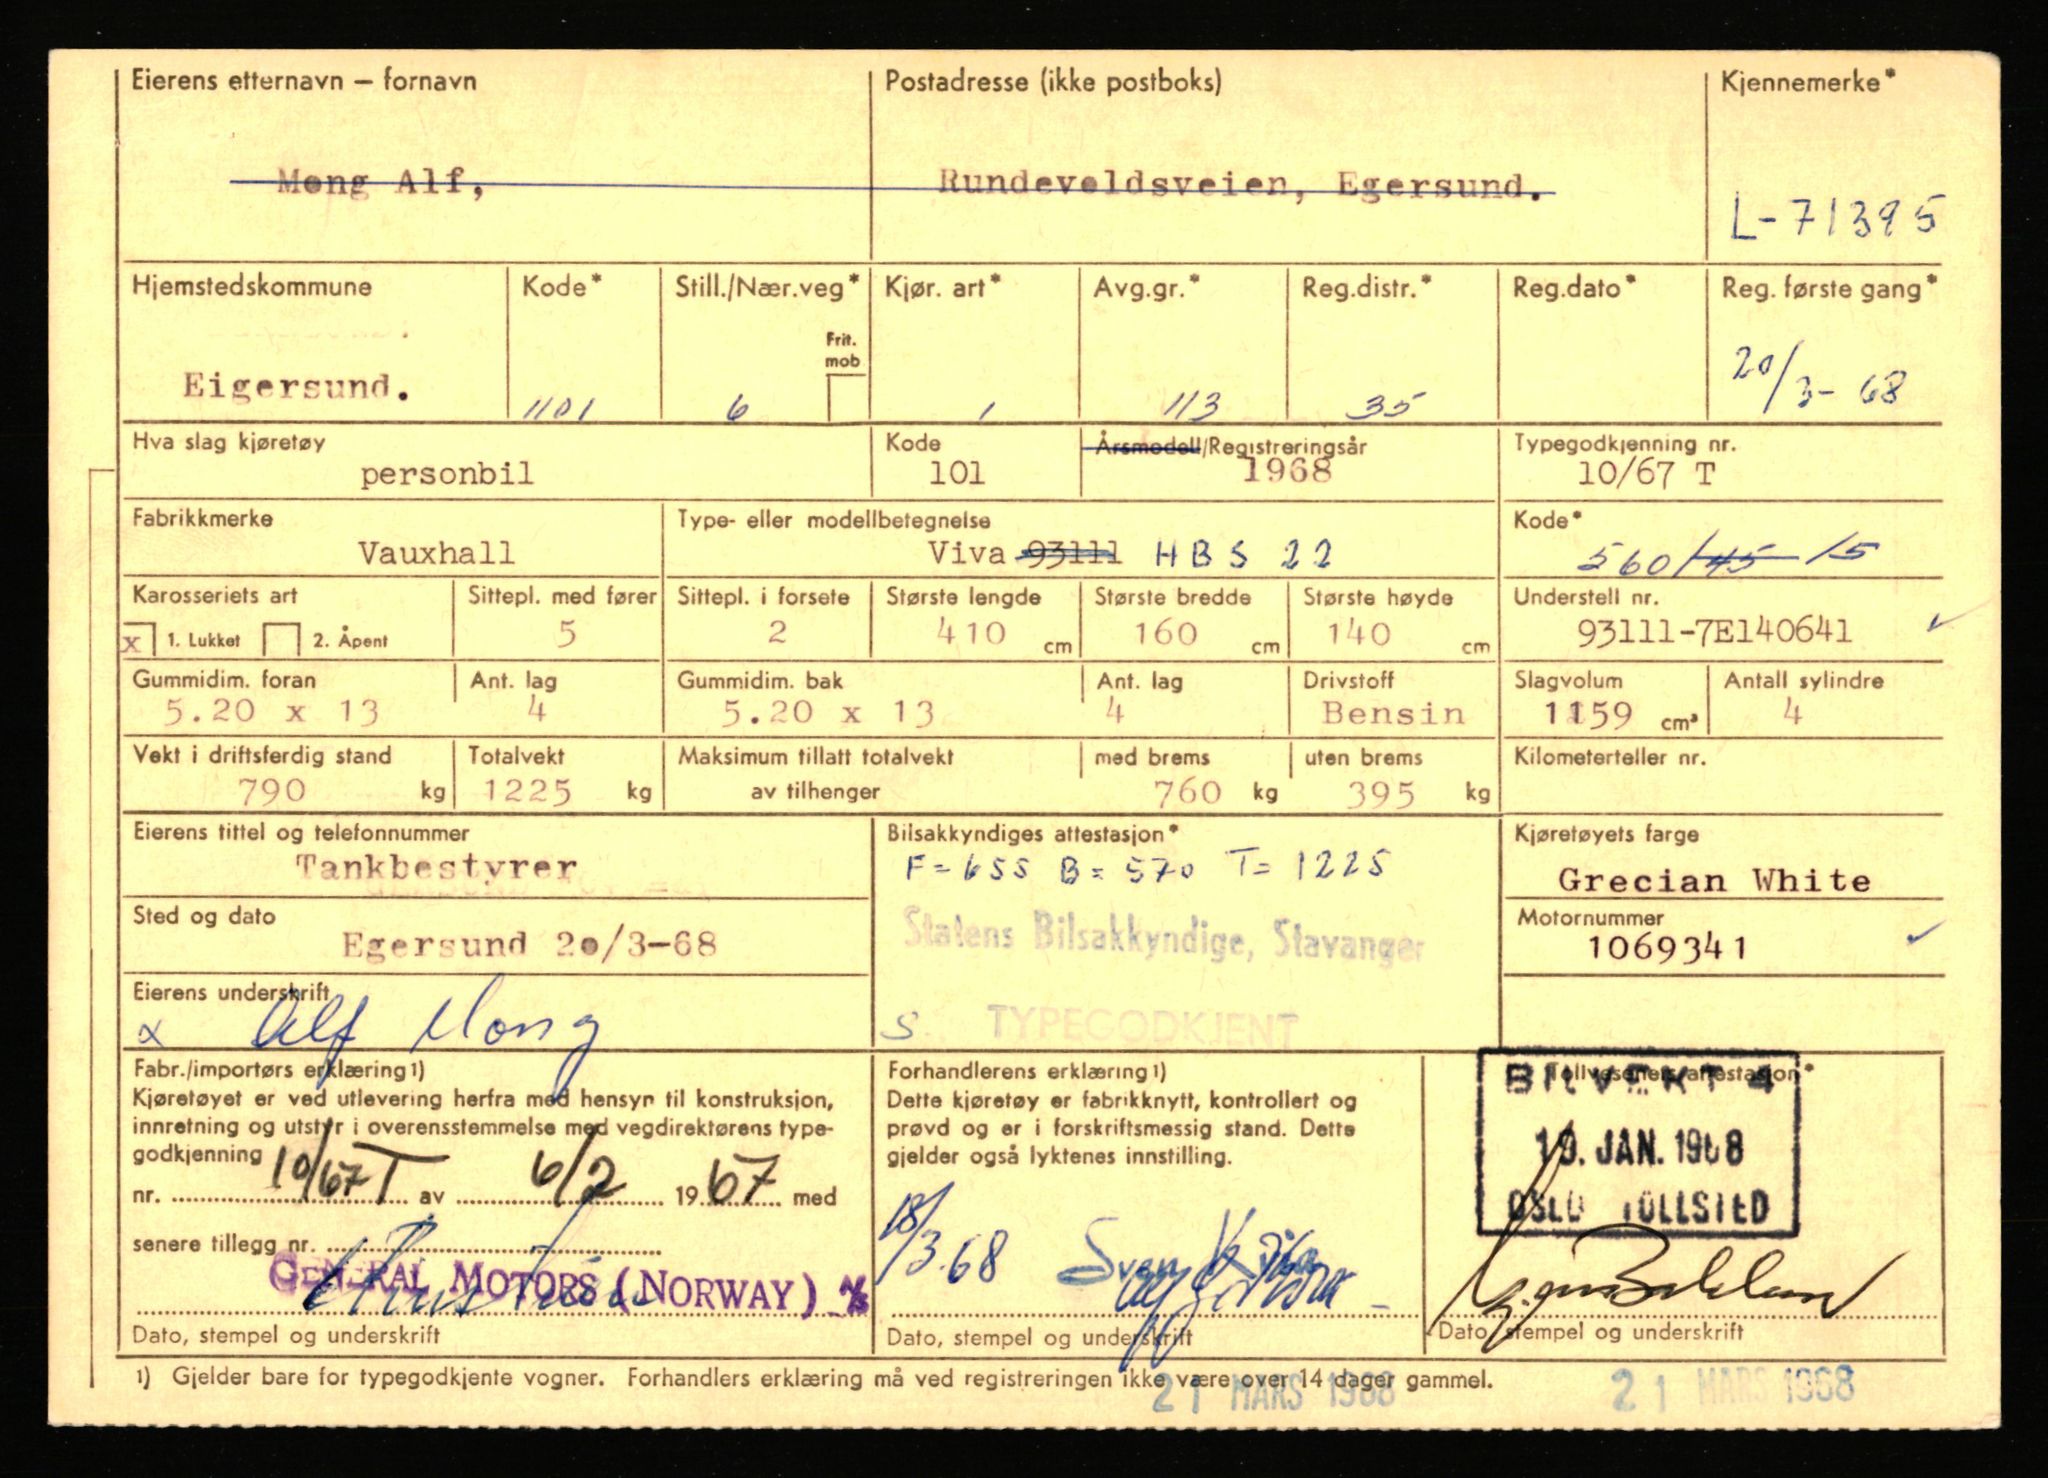 Eierens etternavn – fornavn
Mong Alf,
Postadresse (ikke postboks)
Rundevoldsveien, Egersund.
Kjennemerke*
L-71395
Hjemstedskommune
Eigersund.
Kode*
1101
Still./Nær.veg*
Frit.
mob
6
Kjør. art*
1
Avg.gr.*
113
Reg.distr.*
35
Reg.dato*
Reg. første gang*
20/3-68
Hva slag kjøretøy
personbil
Kode
101
Årsmodell/Registreringsår
1968
Typegodkjenning nr.
10/67 T
Fabrikkmerke
Vauxhall
Type- eller modellbetegnelse
Viva 93111 HBS 22
Kode*
560/45/5
Karosseriets art
x 1. Lukket 2. Åpent
Sittepl. med fører
5
Sittepl. i forsete
2
Største lengde
410 cm
Største bredde
160 cm
Største høyde
140 cm
Understell nr.
93111-7E140641
Gummidim. foran
5.20 x 13
Ant. lag
4
Gummidim. bak
5.20 x 13
Ant. lag
4
Drivstoff
Bensin
Slagvolum
1159 cm³
Antall sylindre
4
Vekt i driftsferdig stand
790 kg
Totalvekt
1225 kg
Maksimum tillatt totalvekt
av tilhenger
med brems
760 kg
uten brems
395 kg
Kilometerteller nr.
Eierens tittel og telefonnummer
Tankbestyrer
Bilsakkyndiges attestasjon*
F=655 B=570 T=1225
Statens Bilsakkyndige, Stavanger
S TYPEGODKJENT
Kjøretøyets farge
Grecian White
Sted og dato
Egersund 20/3-68
Motornummer
1069341
Eierens underskrift
x Alf Mong
Fabr./importørs erklæring 1)
Kjøretøyet er ved utlevering herfra med hensyn til konstruksjon,
innretning og utstyr i overensstemmelse med vegdirektørens type-
godkjenning
nr. 10/67 T av 6/2 1967 med
senere tillegg nr.
GENERAL MOTORS (NORWAY) A/S
Dato, stempel og underskrift
Forhandlerens erklæring 1)
Dette kjøretøy er fabrikknytt, kontrollert og
prøvd og er i forskriftsmessig stand. Dette
gjelder også lyktenes innstilling.
18/3.68
Dato, stempel og underskrift
Tollvesenets attestasjon*
BILVEKT 4
19. JAN. 1968
OSLO TOLLSTED
Dato, stempel og underskrift
1) Gjelder bare for typegodkjente vogner. Forhandlers erklæring må ved registreringen ikke være over 14 dager gammel.
21 MARS 1968
21 MARS 1968